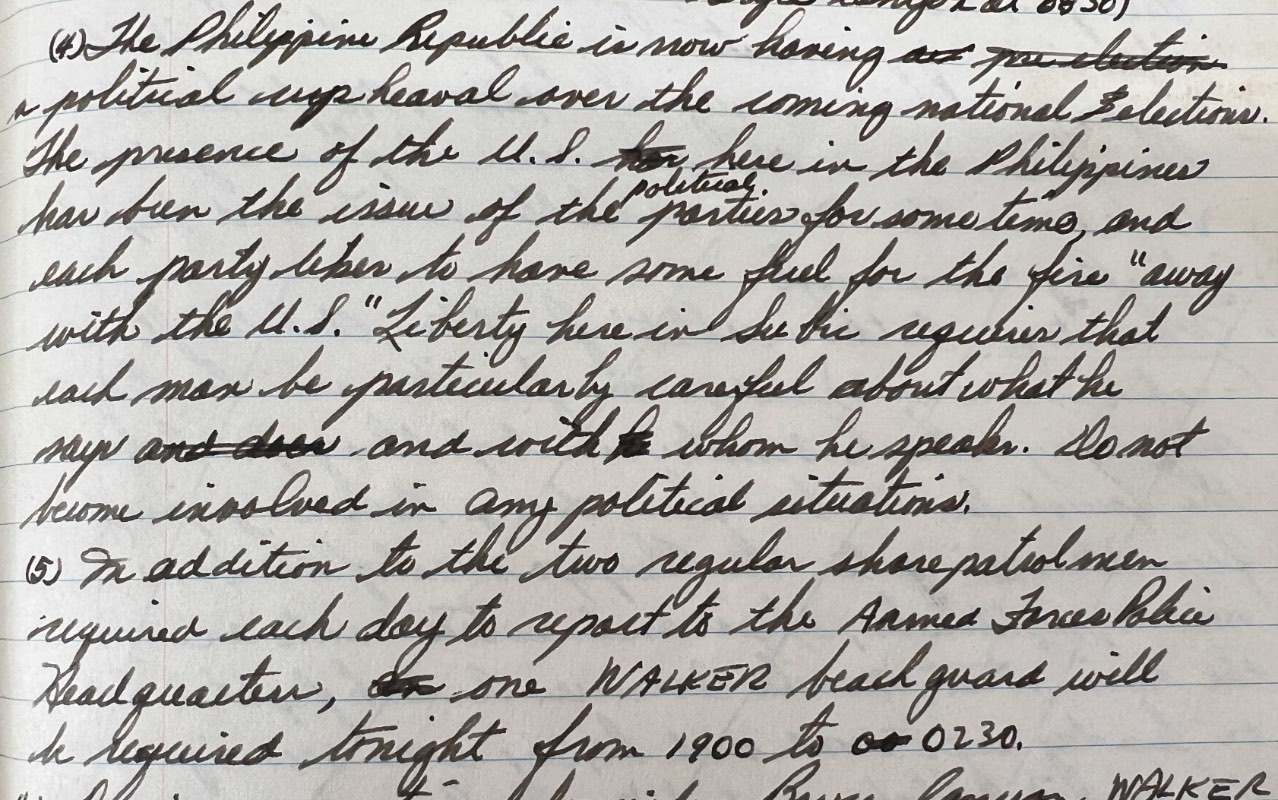 at 0630)
(4) The Philippine Republic is now having an pre election
a political upheaval over the coming national elections.
The presence of the U.S. her here in the Philippines
political
has been the issue of the parties for some time, and
each party likes to have some fuel for the fire "away
with the U.S." Liberty here in Subic requires that
each man be particularly careful about what he
says and does and with whom he speaks. Do not
become involved in any political situations.
(5) In addition to the two regular shore patrolmen
required each day to report to the Armed Forces Police
Headquarters, one WALKER beach guard will
be required tonight from 1900 to 00 0230.
WALKER